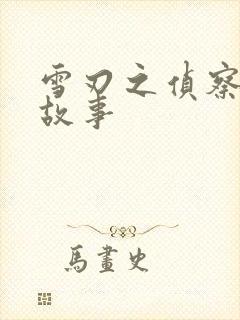 雪刃之偵察
故事
馬畫史